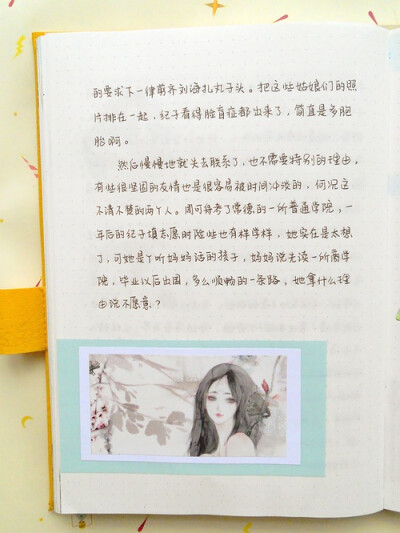 的要求下一律剪齐刘海扎丸子头。把这些姑娘们的照
片排在一起，纪子看得脸盲症都出来了，简直是多胞
胎啊。
然后慢慢地就失去联系了，也不需要特别的理由，
有些很坚固的友情也是很容易被时间冲淡的，何况这
不清不楚的两个人。周可待考了常德的一所普通学院，一
年后的纪子填志愿时险些也有样学样，她实在是太想
了，可她是个听妈妈话的孩子，妈妈说先读一所商学
院，毕业以后出国，多么顺畅的一条路。她拿什么理
由说不愿意？